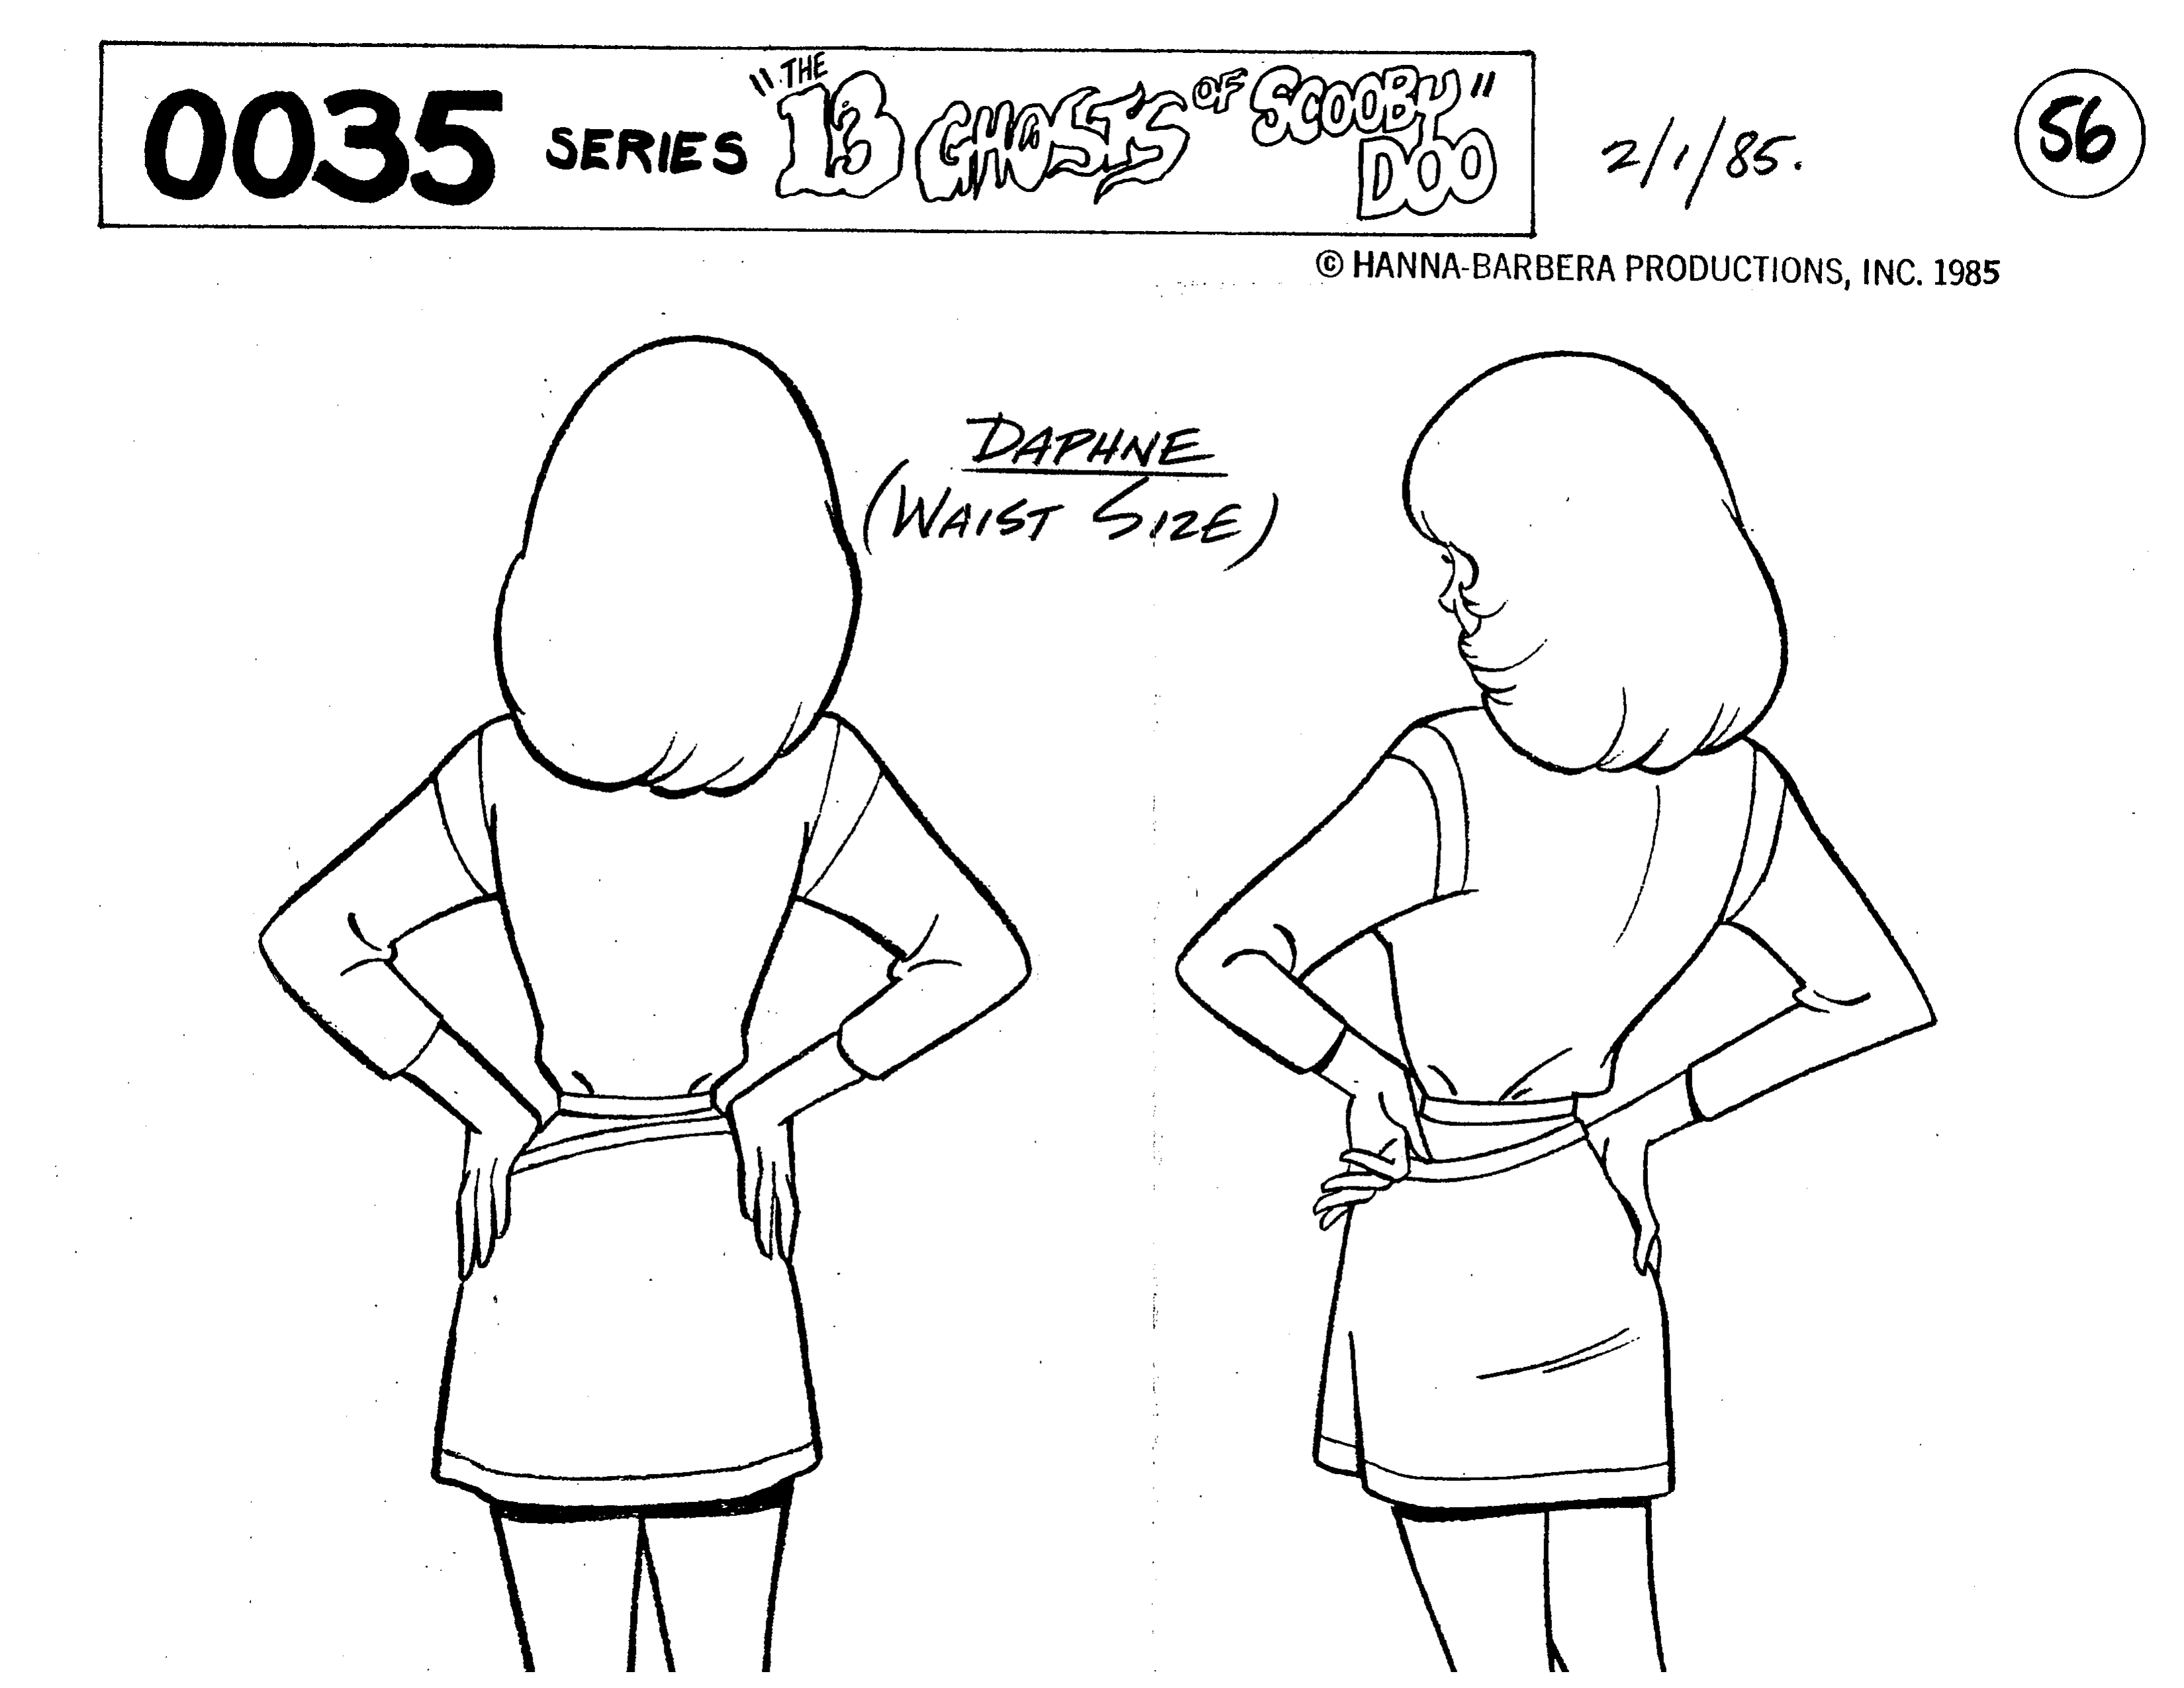 0035 SERIES "THE 13 GHOSTS OF SCOOBY DOO" 2/1/85. 56
© HANNA-BARBERA PRODUCTIONS, INC. 1985
DAPHNE
(WAIST SIZE)